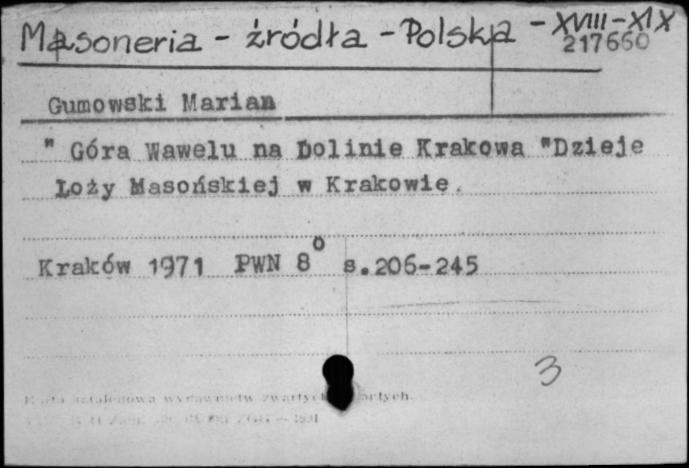 Masoneria - źródła - Polska - XVIII-XIX
217660
Gumowski Marian
" Góra Wawelu na Dolinie Krakowa "Dzieje
Loży Masońskiej w Krakowie.
Kraków 1971 PWN 8° s.206-245
3
wydawnictw